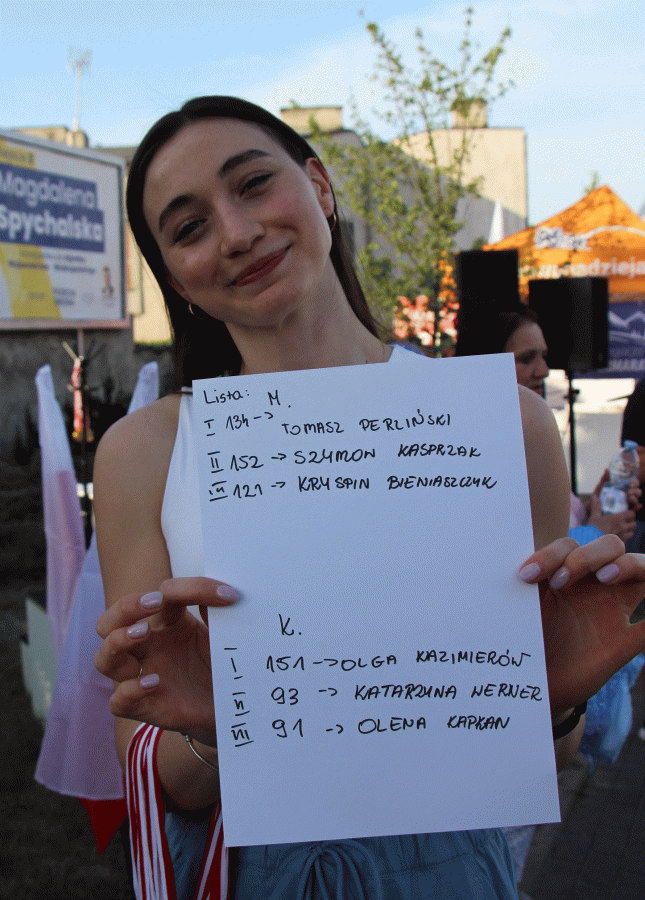 Magdalena
Spychalska
nadzieja
Lista: M.
I 134 -> TOMASZ PERLIŃSKI
II 152 -> SZYMON KASPRZAK
III 121 -> KRYSPIN BIENIASZCZYK
K.
I 151 -> OLGA KAZIMIERÓW
II 93 -> KATARZYNA WERNER
III 91 -> OLENA KAPKAN